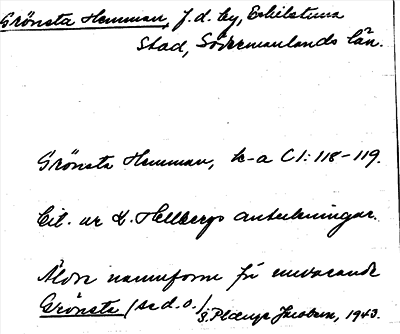 Grönsta Hemman, f.d. by, Eskilstuna
Stad, Södermanlands län.
Grönsta Hemman, k-a C I: 118-119.
Cit. ur K. Hellbergs anteckningar.
Äldre namnform för nuvarande
Grönsta (se d. o.)
1943.